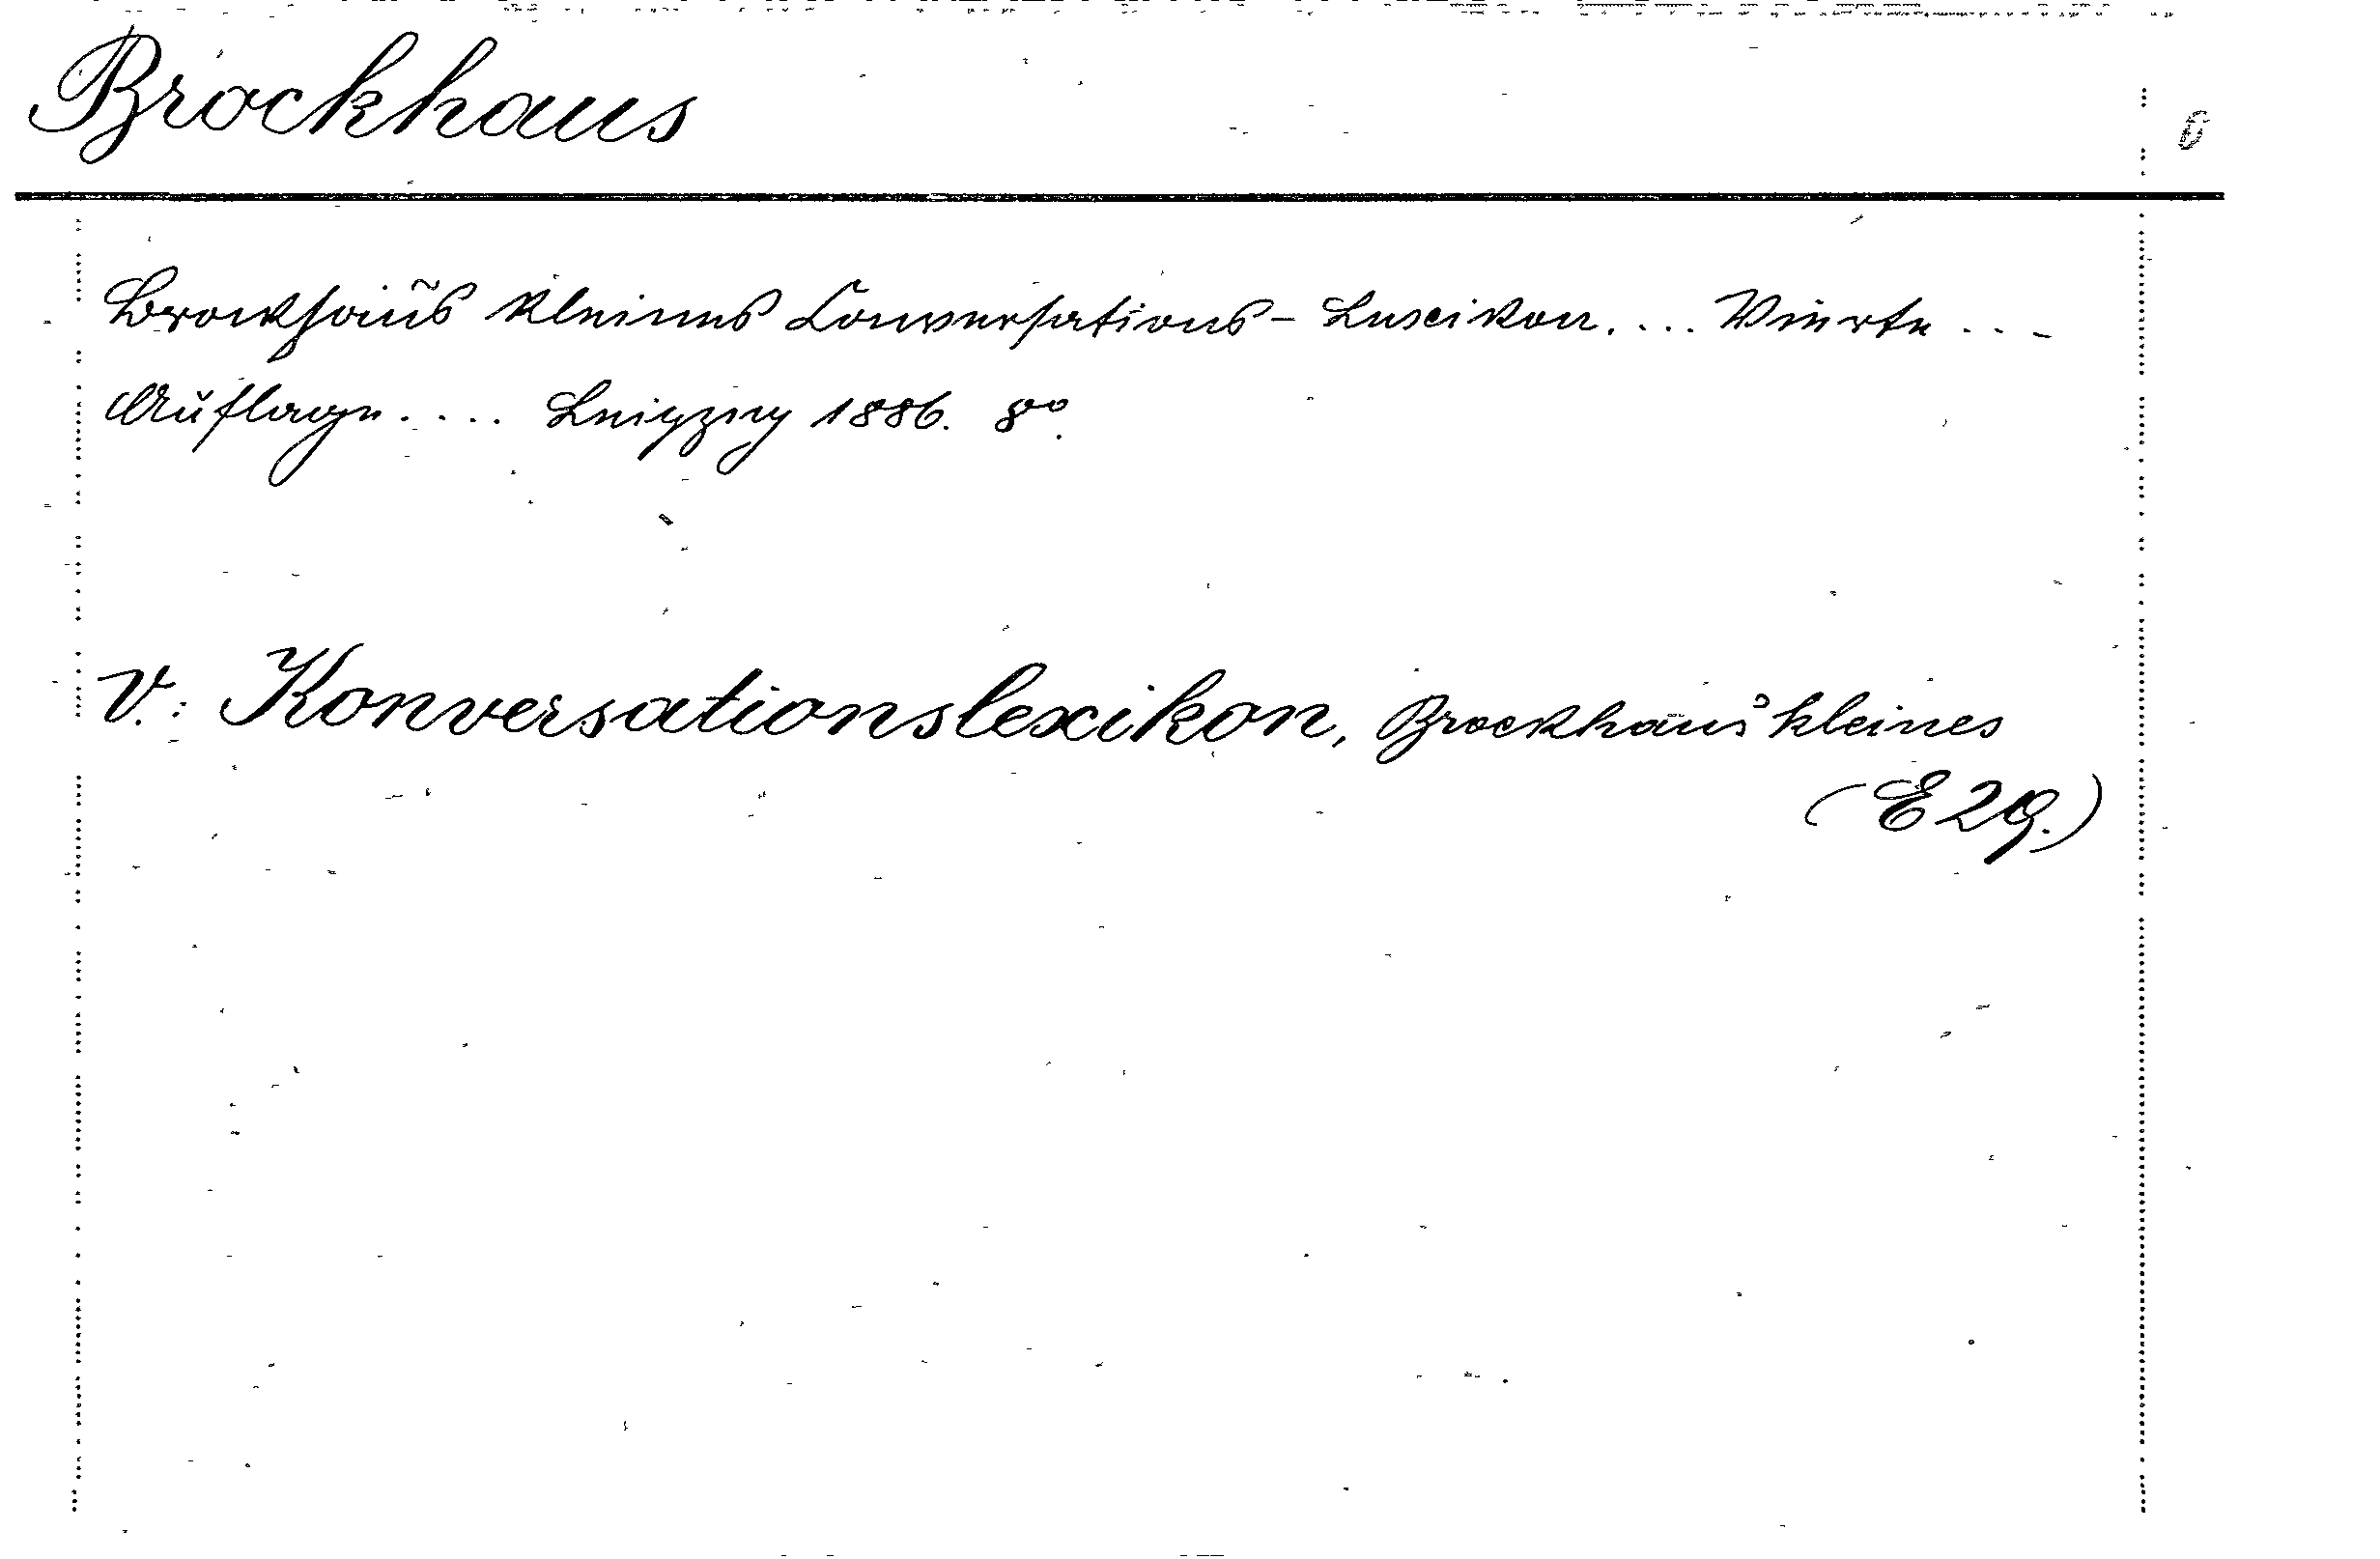 Brockhaus
6
Brockhaus kleines Conversations-Lexikon. ... Vierte ...
Auflage. ... Leipzig 1886. 8º.
V.: Konversationslexikon, Brockhaus' kleines
(E 29.)